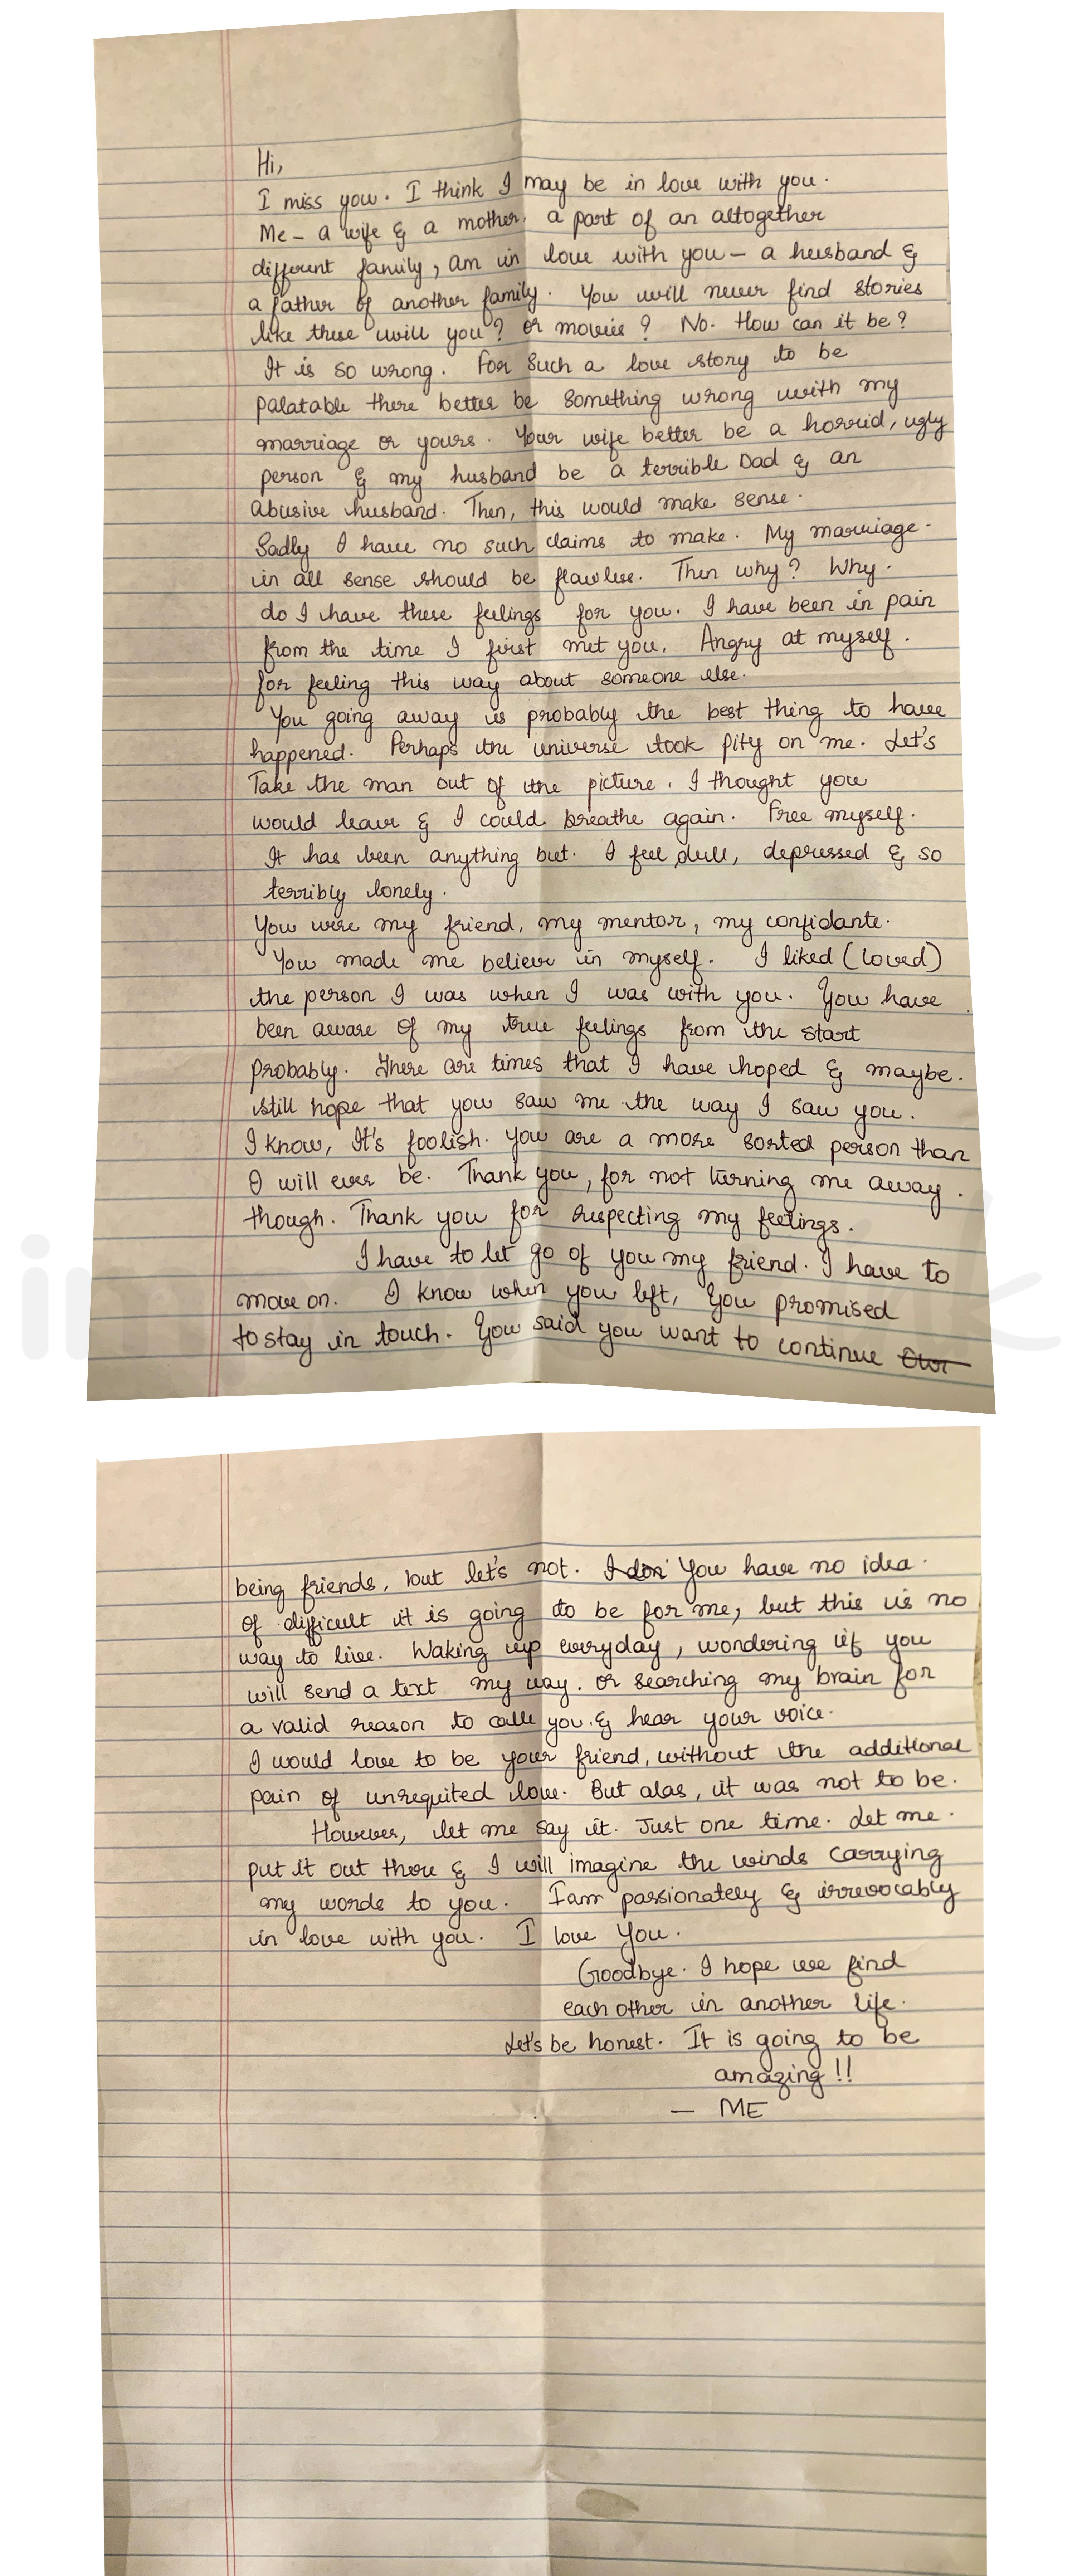 Hi,
I miss you. I think I may be in love with you.
Me - a wife & a mother, a part of an altogether
different family, am in love with you - a husband &
a father of another family. You will never find stories
like these will you? or movies? No. How can it be?
It is so wrong. For such a love story to be
palatable there better be something wrong with my
marriage or yours. Your wife better be a horrid, ugly
person & my husband be a terrible Dad & an
abusive husband. Then, this would make sense.
Sadly I have no such claims to make. My marriage.
in all sense should be flawless. Then why? Why.
do I have these feelings for you. I have been in pain
from the time I first met you. Angry at myself.
for feeling this way about someone else.
You going away is probably the best thing to have
happened. Perhaps the universe took pity on me. Let's
Take the man out of the picture. I thought you
would leave & I could breathe again. Free myself.
It has been anything but. I feel dull, depressed & so
terribly lonely.
You were my friend, my mentor, my confidante.
You made me believe in myself. I liked (loved)
the person I was when I was with you. You have
been aware of my true feelings from the start
probably. There are times that I have hoped & maybe.
still hope that you saw me the way I saw you.
I know, It's foolish. You are a more sorted person than
I will ever be. Thank you, for not turning me away.
though. Thank you for respecting my feelings.
I have to let go of you my friend. I have to
move on. I know when you left, you promised
to stay in touch. You said you want to continue Our
being friends, but let's not. I don' You have no idea.
of difficult it is going to be for me, but this is no
way to live. Waking up everyday, wondering if you
will send a text my way. or searching my brain for
a valid reason to call you & hear your voice.
I would love to be your friend, without the additional
pain of unrequited love. But alas, it was not to be.
However, let me say it. Just one time. Let me.
put it out there & I will imagine the winds carrying
my words to you. I am passionately & irrevocably
in love with you. I love You.
Goodbye. I hope we find
each other in another life.
Let's be honest. It is going to be
amazing!!
- ME